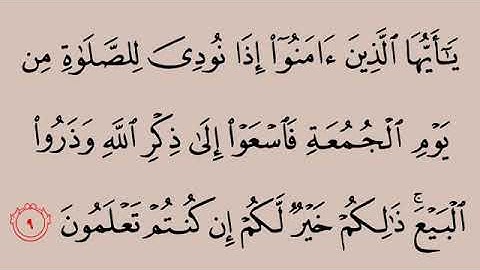 يَـٰٓأَيُّهَا ٱلَّذِينَ ءَامَنُوٓا۟ إِذَا نُودِىَ لِلصَّلَوٰةِ مِن
يَوْمِ ٱلْجُمُعَةِ فَٱسْعَوْا۟ إِلَىٰ ذِكْرِ ٱللَّهِ وَذَرُوا۟
ٱلْبَيْعَ ۚ ذَٰلِكُمْ خَيْرٌ لَّكُمْ إِن كُنتُمْ تَعْلَمُونَ ٩